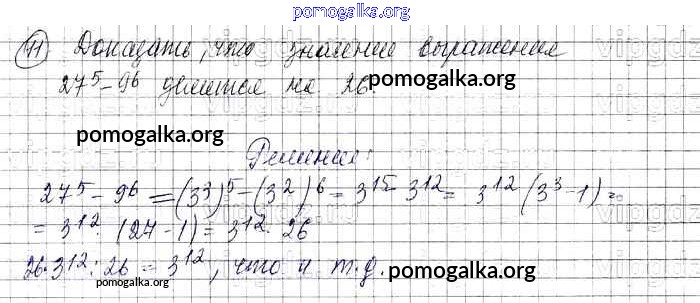 pomogalka.org
11 Доказать, что значение выражения
27⁵ - 9⁶ делится на 26. pomogalka.org
pomogalka.org
Решение:
27⁵ - 9⁶ = (3³)⁵ - (3²)⁶ = 3¹⁵ - 3¹² = 3¹² (3³ - 1) =
= 3¹² · (27 - 1) = 3¹² · 26
26 · 3¹² : 26 = 3¹², что и т.д. pomogalka.org
pomogalka.org